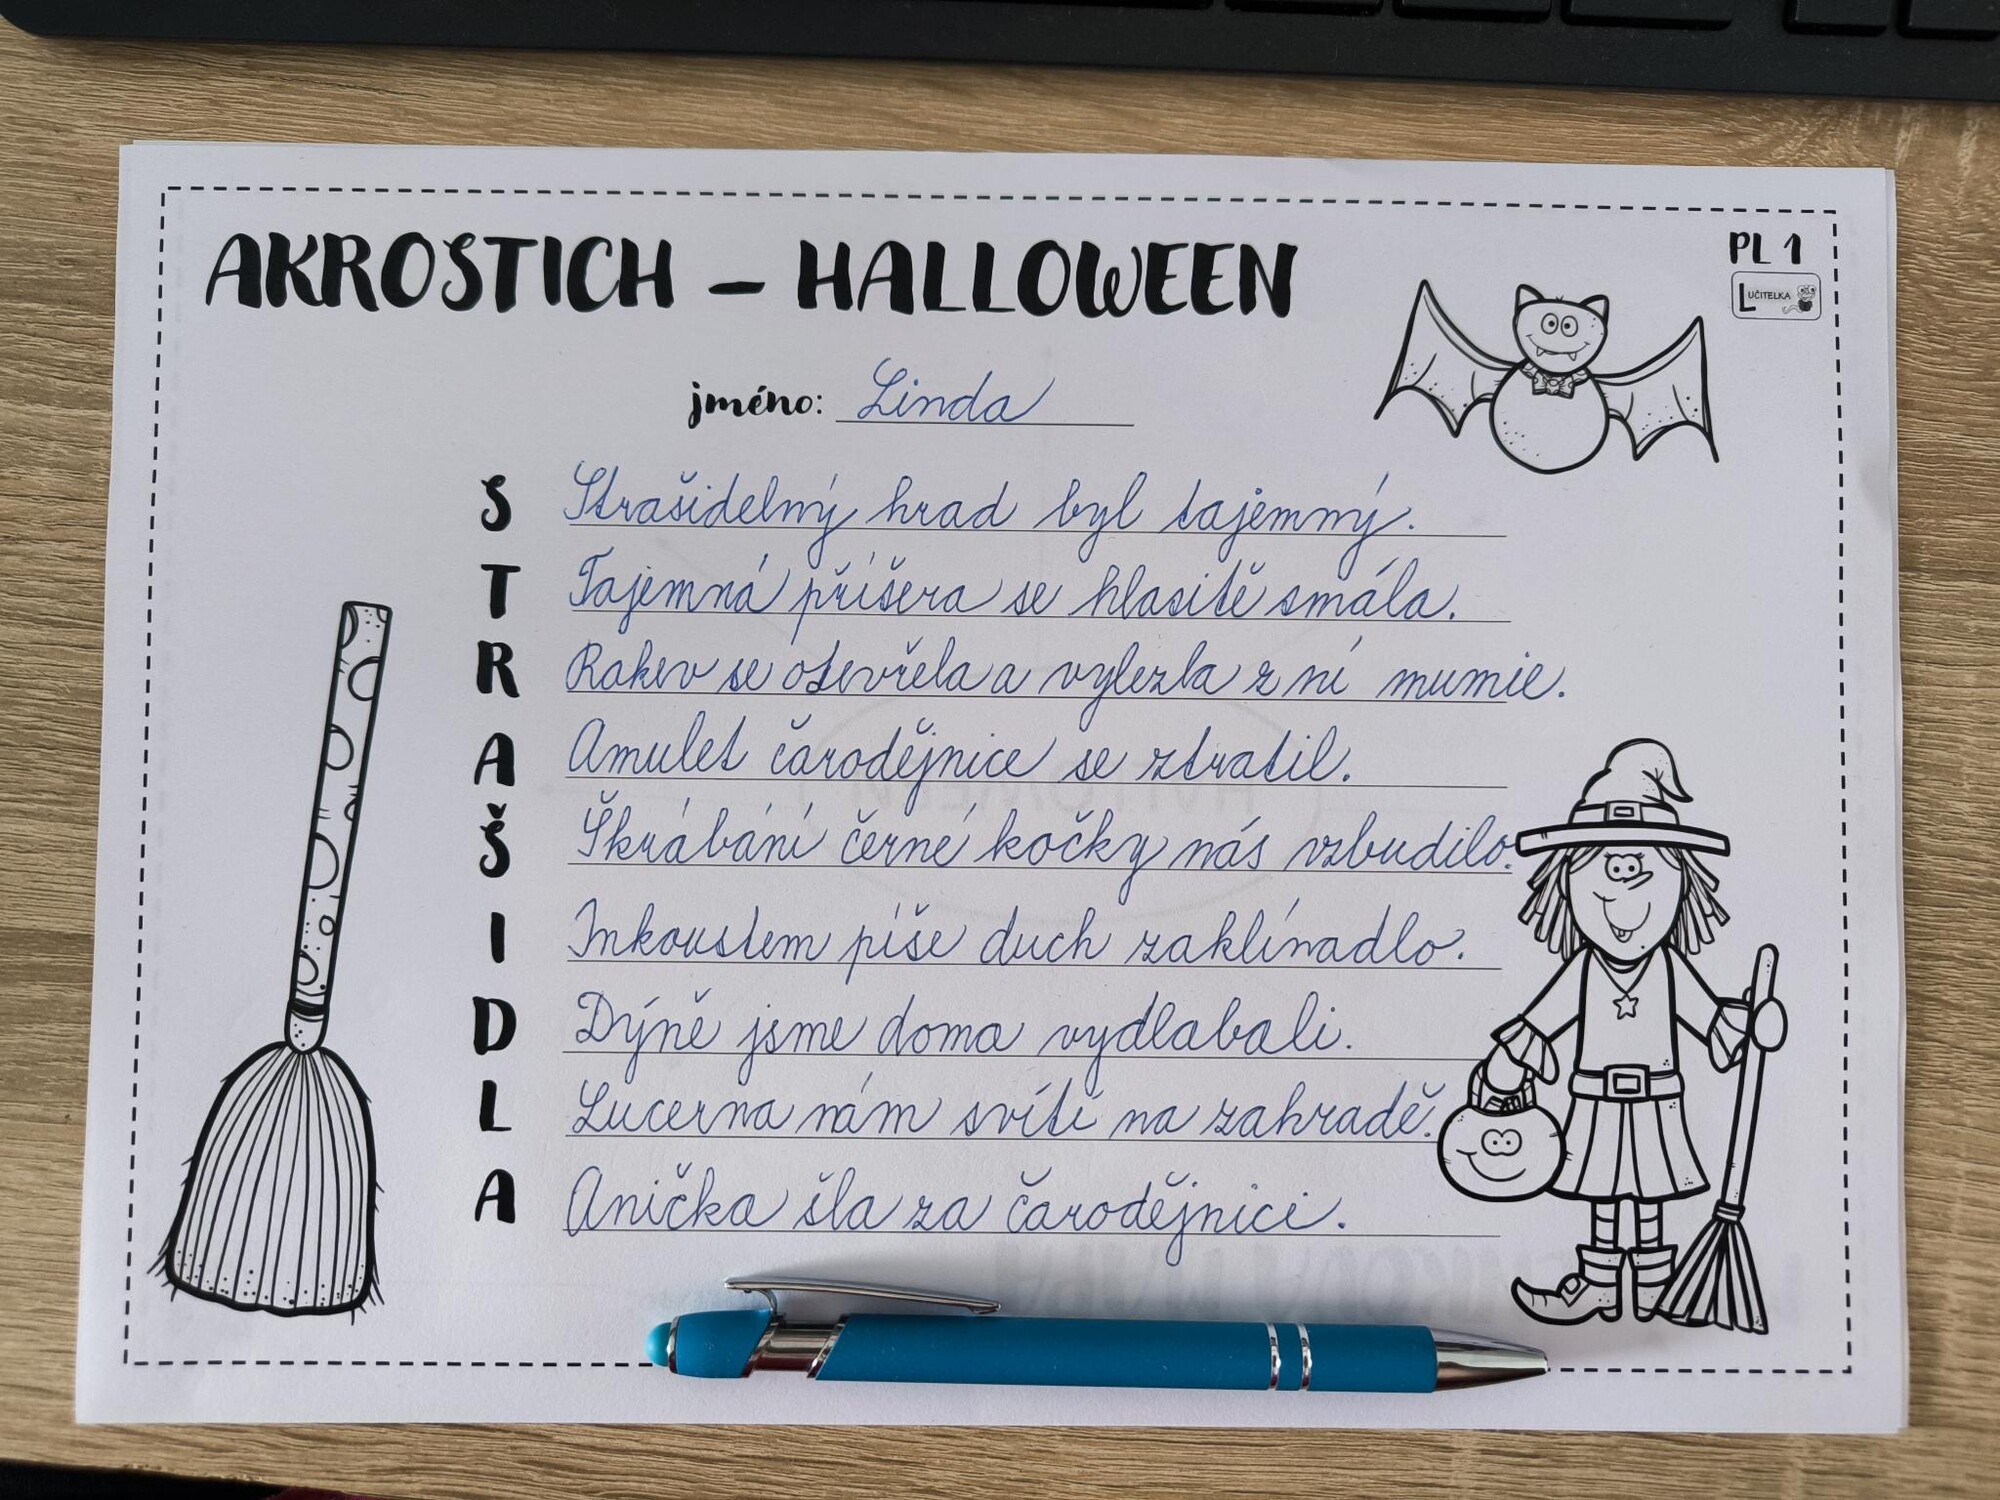 AKROSTICH – HALLOWEEN
PL 1
L UČITELKA
jméno: Linda
S Strašidelný hrad byl tajemný.
T Tajemná příšera se hlasitě smála.
R Rakev se otevřela a vylezla z ní mumie.
A Amulet čarodějnice se ztratil.
Š Škrábání černé kočky nás vzbudilo.
I Inkoustem píše duch zaklínadlo.
D Dýně jsme doma vydlabali.
L Lucerna nám svítí na zahradě.
A Anička šla za čarodějnicí.